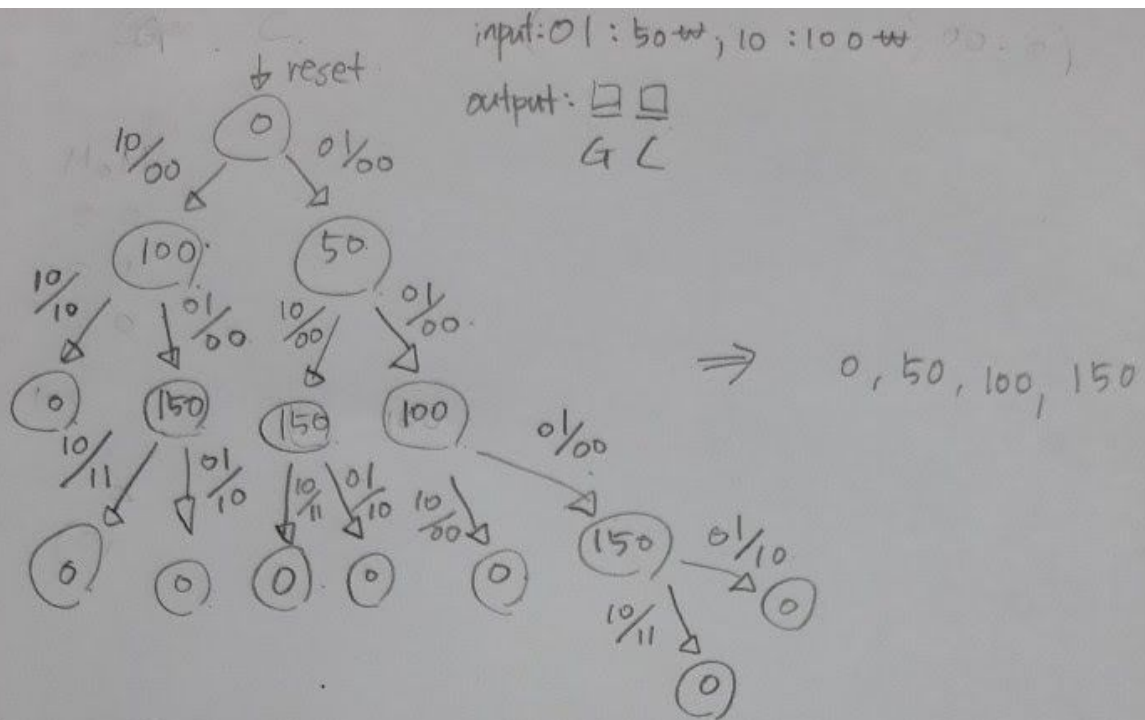 input: 01 : 50₩, 10 : 100₩
reset
output:
G C
0
10/00 01/00
100 50
10/10 01/00 10/00 01/00
⇒ 0, 50, 100, 150
0 150 150 100
01/00
10/11 01/10 10/11 01/10 10/00
150 01/10
0 0 0 0 0
0
10/11
0